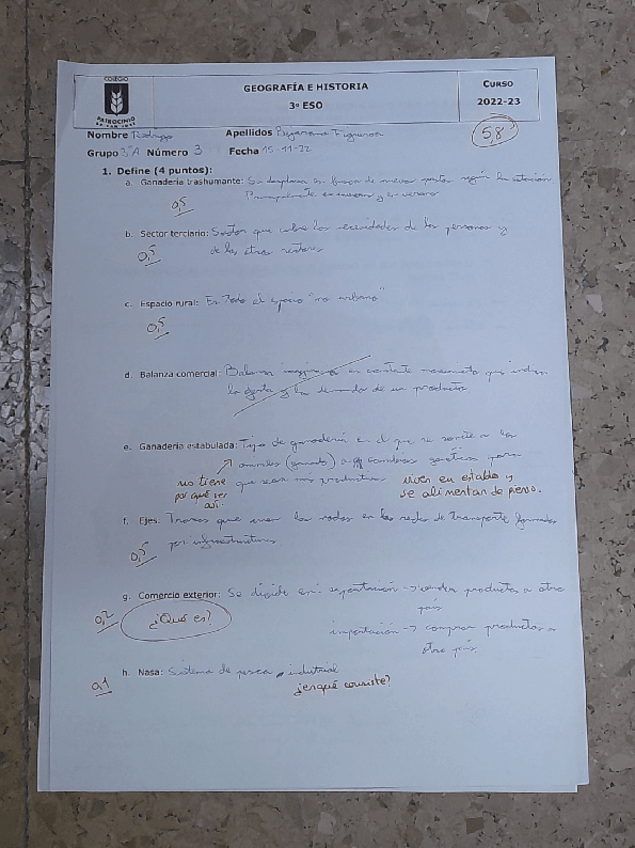 COLEGIO
PATROCINIO
GEOGRAFÍA E HISTORIA
3º ESO
CURSO
2022-23
5,8
Nombre Rodrigo Apellidos
Grupo 3ºA Número 3 Fecha 15-11-22
1. Define (4 puntos):
a. Ganadería trashumante: Se desplaza en busca de nuevos pastos según la estación
Principalmente en invierno y en verano
0,5
b. Sector terciario: Sector que cubre las necesidades de las personas y
de los otros sectores
0,5
c. Espacio rural: Es todo el espacio "no urbano"
0,5
d. Balanza comercial: Balanza en constante movimiento que indica
la oferta y la demanda de un producto
e. Ganadería estabulada: Tipo de ganadería en el que se somete a los
animales (ganado) a cambios genéticos para
que sean más productivos
no tiene
por qué ser
así.
viven en establo y
se alimentan de pienso.
f. Ejes: Tramos que unen los nodos en las redes de transporte, formados
por infraestructuras
0,5
g. Comercio exterior: Se divide en: exportación -> vender productos a otro
país
0,2
¿Qué es?
importación -> comprar productos a
otro país
h. Nasa: Sistema de pesca industrial
0,1
¿en qué consiste?